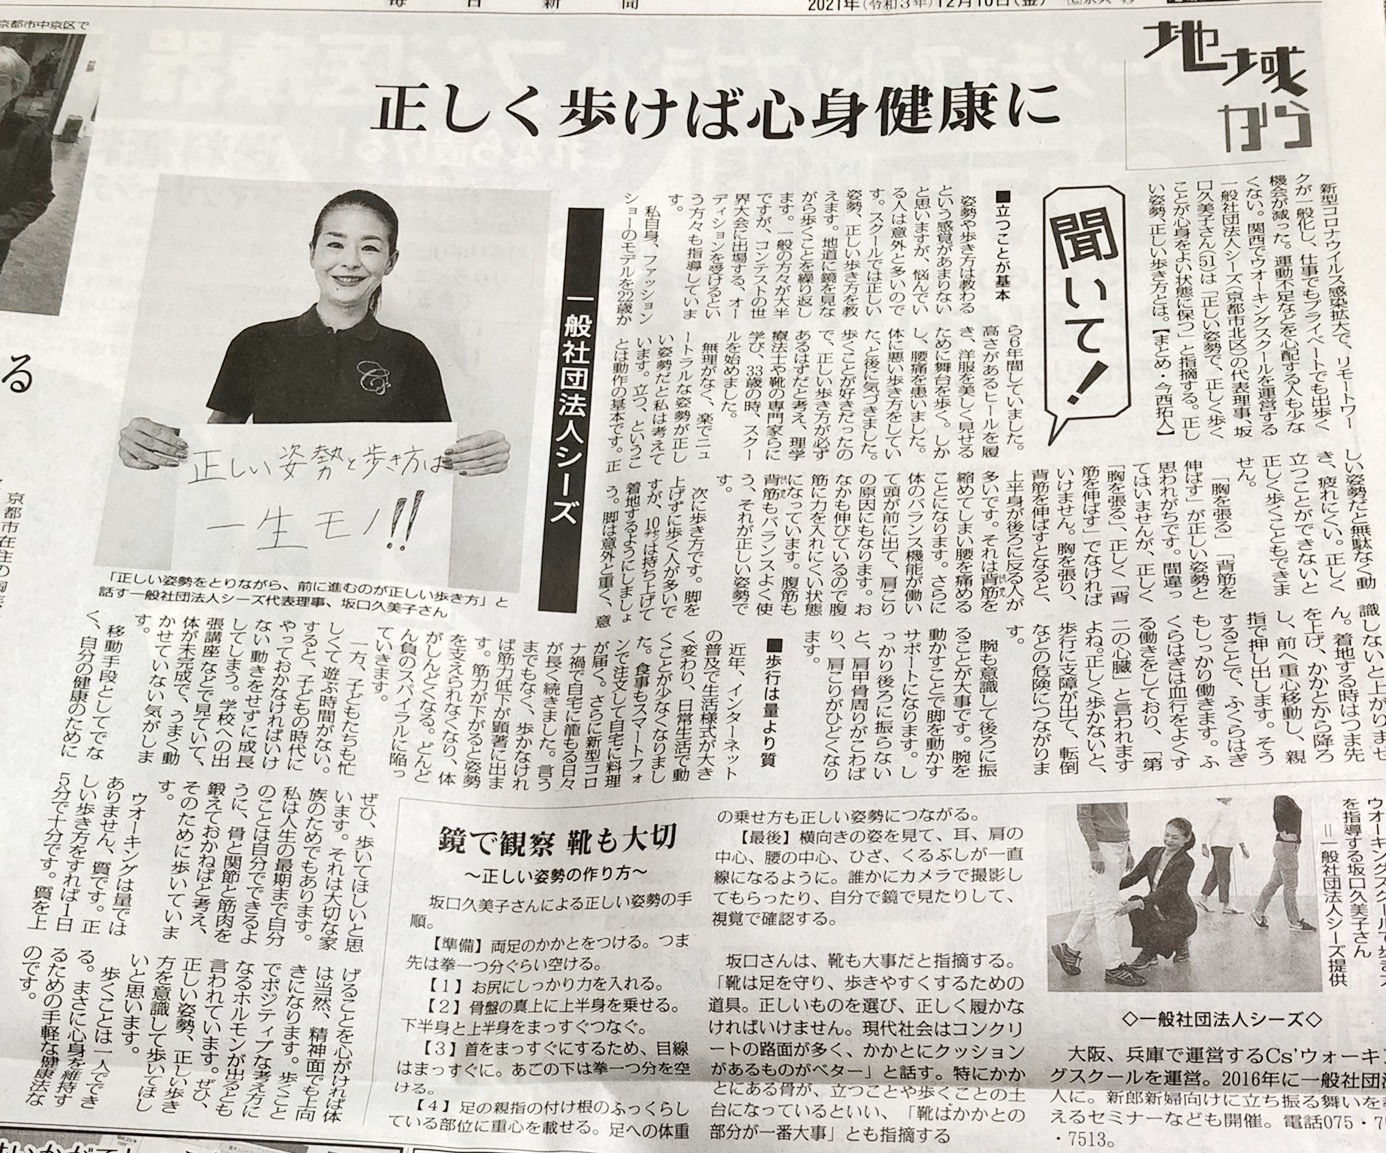 毎日新聞
2021年(令和3年)12月10日(金)
地域から
正しく歩けば心身健康に
聞いて!
新型コロナウイルス感染拡大で、リモートワー
クが一般化し、仕事でもプライベートでも出歩く
機会が減った。運動不足などを心配する人も少な
くない。関西でウオーキングスクールを運営する
一般社団法人シーズ(京都市北区)の代表理事、坂
口久美子さん(51)は「正しい姿勢で、正しく歩く
ことが心身をよい状態に保つ」と指摘する。正し
い姿勢、正しい歩き方とは。【まとめ・今西拓人】
■立つことが基本
姿勢や歩き方は教わる
という感覚があまりない
と思いますが、悩んでい
る人は意外と多いので
す。スクールでは正しい
姿勢、正しい歩き方を教
えます。地道に鏡を見な
がら歩くことを繰り返し
ます。一般の方々が大半
ですが、コンテストの世
界大会に出場する、オー
ディションを受けるとい
う方々も指導していま
す。
私自身、ファッション
ショーのモデルを22歳か
ら6年間していました。
高さがあるヒールを履
き、洋服を美しく見せる
ために舞台を歩く。しか
し、腰痛を患いました。
体に悪い歩き方をしてい
た、と後に気づきました。
歩くことが好きだったの
で、正しい歩き方が必ず
あるはずだと考え、理学
療法士や靴の専門家らに
学び、33歳の時、スクー
ルを始めました。
無理がなく、楽でニュ
ートラルな姿勢が正し
い姿勢だと私は考えて
います。立つ、というこ
とは動作の基本です。正
しい姿勢だと無駄なく動
き、疲れにくい。正しく
立つことができないと
正しく歩くこともできま
せん。
「胸を張る」「背筋を
伸ばす」が正しい姿勢と
思われがちです。間違っ
てはいませんが、正しく
「胸を張る」、正しく「背
筋を伸ばす」でなければ
いけません。胸を張り、
背筋を伸ばすとなると、
上半身が後ろに反る人が
多いです。それは背筋を
縮めてしまい腰を痛める
ことになります。さらに
体のバランス機能が働い
て頭が前に出て、肩こり
の原因にもなります。お
なかも伸びているので腹
筋に力を入れにくい状態
になっています。腹筋も
背筋もバランスよく使
う、それが正しい姿勢で
す。
次に歩き方です。脚を
上げずに歩く人が多いで
すが、10㌢は持ち上げて
着地するようにしましょ
う。脚は意外と重く、意
識しないと上がりませ
ん。着地する時はつま先
を上げ、かかとから降ろ
し、前へ重心移動し、親
指で押し出します。そう
することで、ふくらはぎ
もしっかり働きます。ふ
くらはぎは血行をよくす
る働きをしており、「第
二の心臓」と言われます
よね。正しく歩かないと、
歩行に支障が出て、転倒
などの危険につながりま
す。
腕も意識して後ろに振
ることが大事です。腕を
動かすことで脚を動かす
サポートになります。し
っかり後ろに振らない
と、肩甲骨周りがこわば
り、肩こりがひどくなり
ます。
■歩行は量より質
近年、インターネット
の普及で生活様式が大き
く変わり、日常生活で動
くことが少なくなりまし
た。食事もスマートフォ
ンで注文して自宅に料理
が届く。さらに新型コロ
ナ禍で自宅に籠もる日々
が長く続きました。言う
までもなく、歩かなけれ
ば筋力低下が顕著に出ま
す。筋力が下がると姿勢
を支えられなくなり、体
がしんどくなる。どんど
ん負のスパイラルに陥っ
ていきます。
一方、子どもたちも忙
しくて遊ぶ時間がない。
すると、子どもの時代に
やっておかなければいけ
ない動きをせずに成長
してしまう。学校への出
張講座などで見ていて、
体が未完成で、うまく動
かせていない気がしま
す。
移動手段としてでな
く、自分の健康のために
ぜひ、歩いてほしいと思
います。それは大切な家
族のためでもあります。
私は人生の最期まで自分
のことは自分でできるよ
うに、骨と関節と筋肉を
鍛えておかねばと考え、
そのために歩いていま
す。
ウオーキングは量では
ありません、質です。正
しい歩き方をすれば1日
5分で十分です。質を上
げることを心がければ体
は当然、精神面でも上向
きになります。歩くこと
でポジティブな考え方に
なるホルモンが出るとも
言われています。ぜひ、
正しい姿勢、正しい歩き
方を意識して歩いてほし
いと思います。
歩くことは一人ででき
る。まさに心身を維持す
るための手軽な健康法な
のです。
一般社団法人シーズ
正しい姿勢と歩き方は
一生モノ!!
「正しい姿勢をとりながら、前に進むのが正しい歩き方」と
話す一般社団法人シーズ代表理事、坂口久美子さん
鏡で観察 靴も大切
～正しい姿勢の作り方～
坂口久美子さんによる正しい姿勢の手
順。
【準備】両足のかかとをつける。つま
先は拳一つ分ぐらい空ける。
【1】お尻にしっかり力を入れる。
【2】骨盤の真上に上半身を乗せる。
下半身と上半身をまっすぐつなぐ。
【3】首をまっすぐにするため、目線
はまっすぐに。あごの下は拳一つ分を空
ける。
【4】足の親指の付け根のふっくらし
ている部位に重心を載せる。足への体重
の乗せ方も正しい姿勢につながる。
【最後】横向きの姿を見て、耳、肩の
中心、腰の中心、ひざ、くるぶしが一直
線になるように。誰かにカメラで撮影し
てもらったり、自分で鏡で見たりして、
視覚で確認する。
坂口さんは、靴も大事だと指摘する。
「靴は足を守り、歩きやすくするための
道具。正しいものを選び、正しく履かな
ければいけません。現代社会はコンクリ
ートの路面が多く、かかとにクッション
があるものがベター」と話す。特にかか
とにある骨が、立つことや歩くことの土
台になっているといい、「靴はかかとの
部分が一番大事」とも指摘する
ウオーキングスクールで歩き方
を指導する坂口久美子さん
＝一般社団法人シーズ提供
◇一般社団法人シーズ◇
大阪、兵庫で運営するCs'ウォーキン
グスクールを運営。2016年に一般社団法
人に。新郎新婦向けに立ち振る舞いを教
えるセミナーなども開催。電話075・7
・7513。
京都市中京区で
る
京都市在住の陶